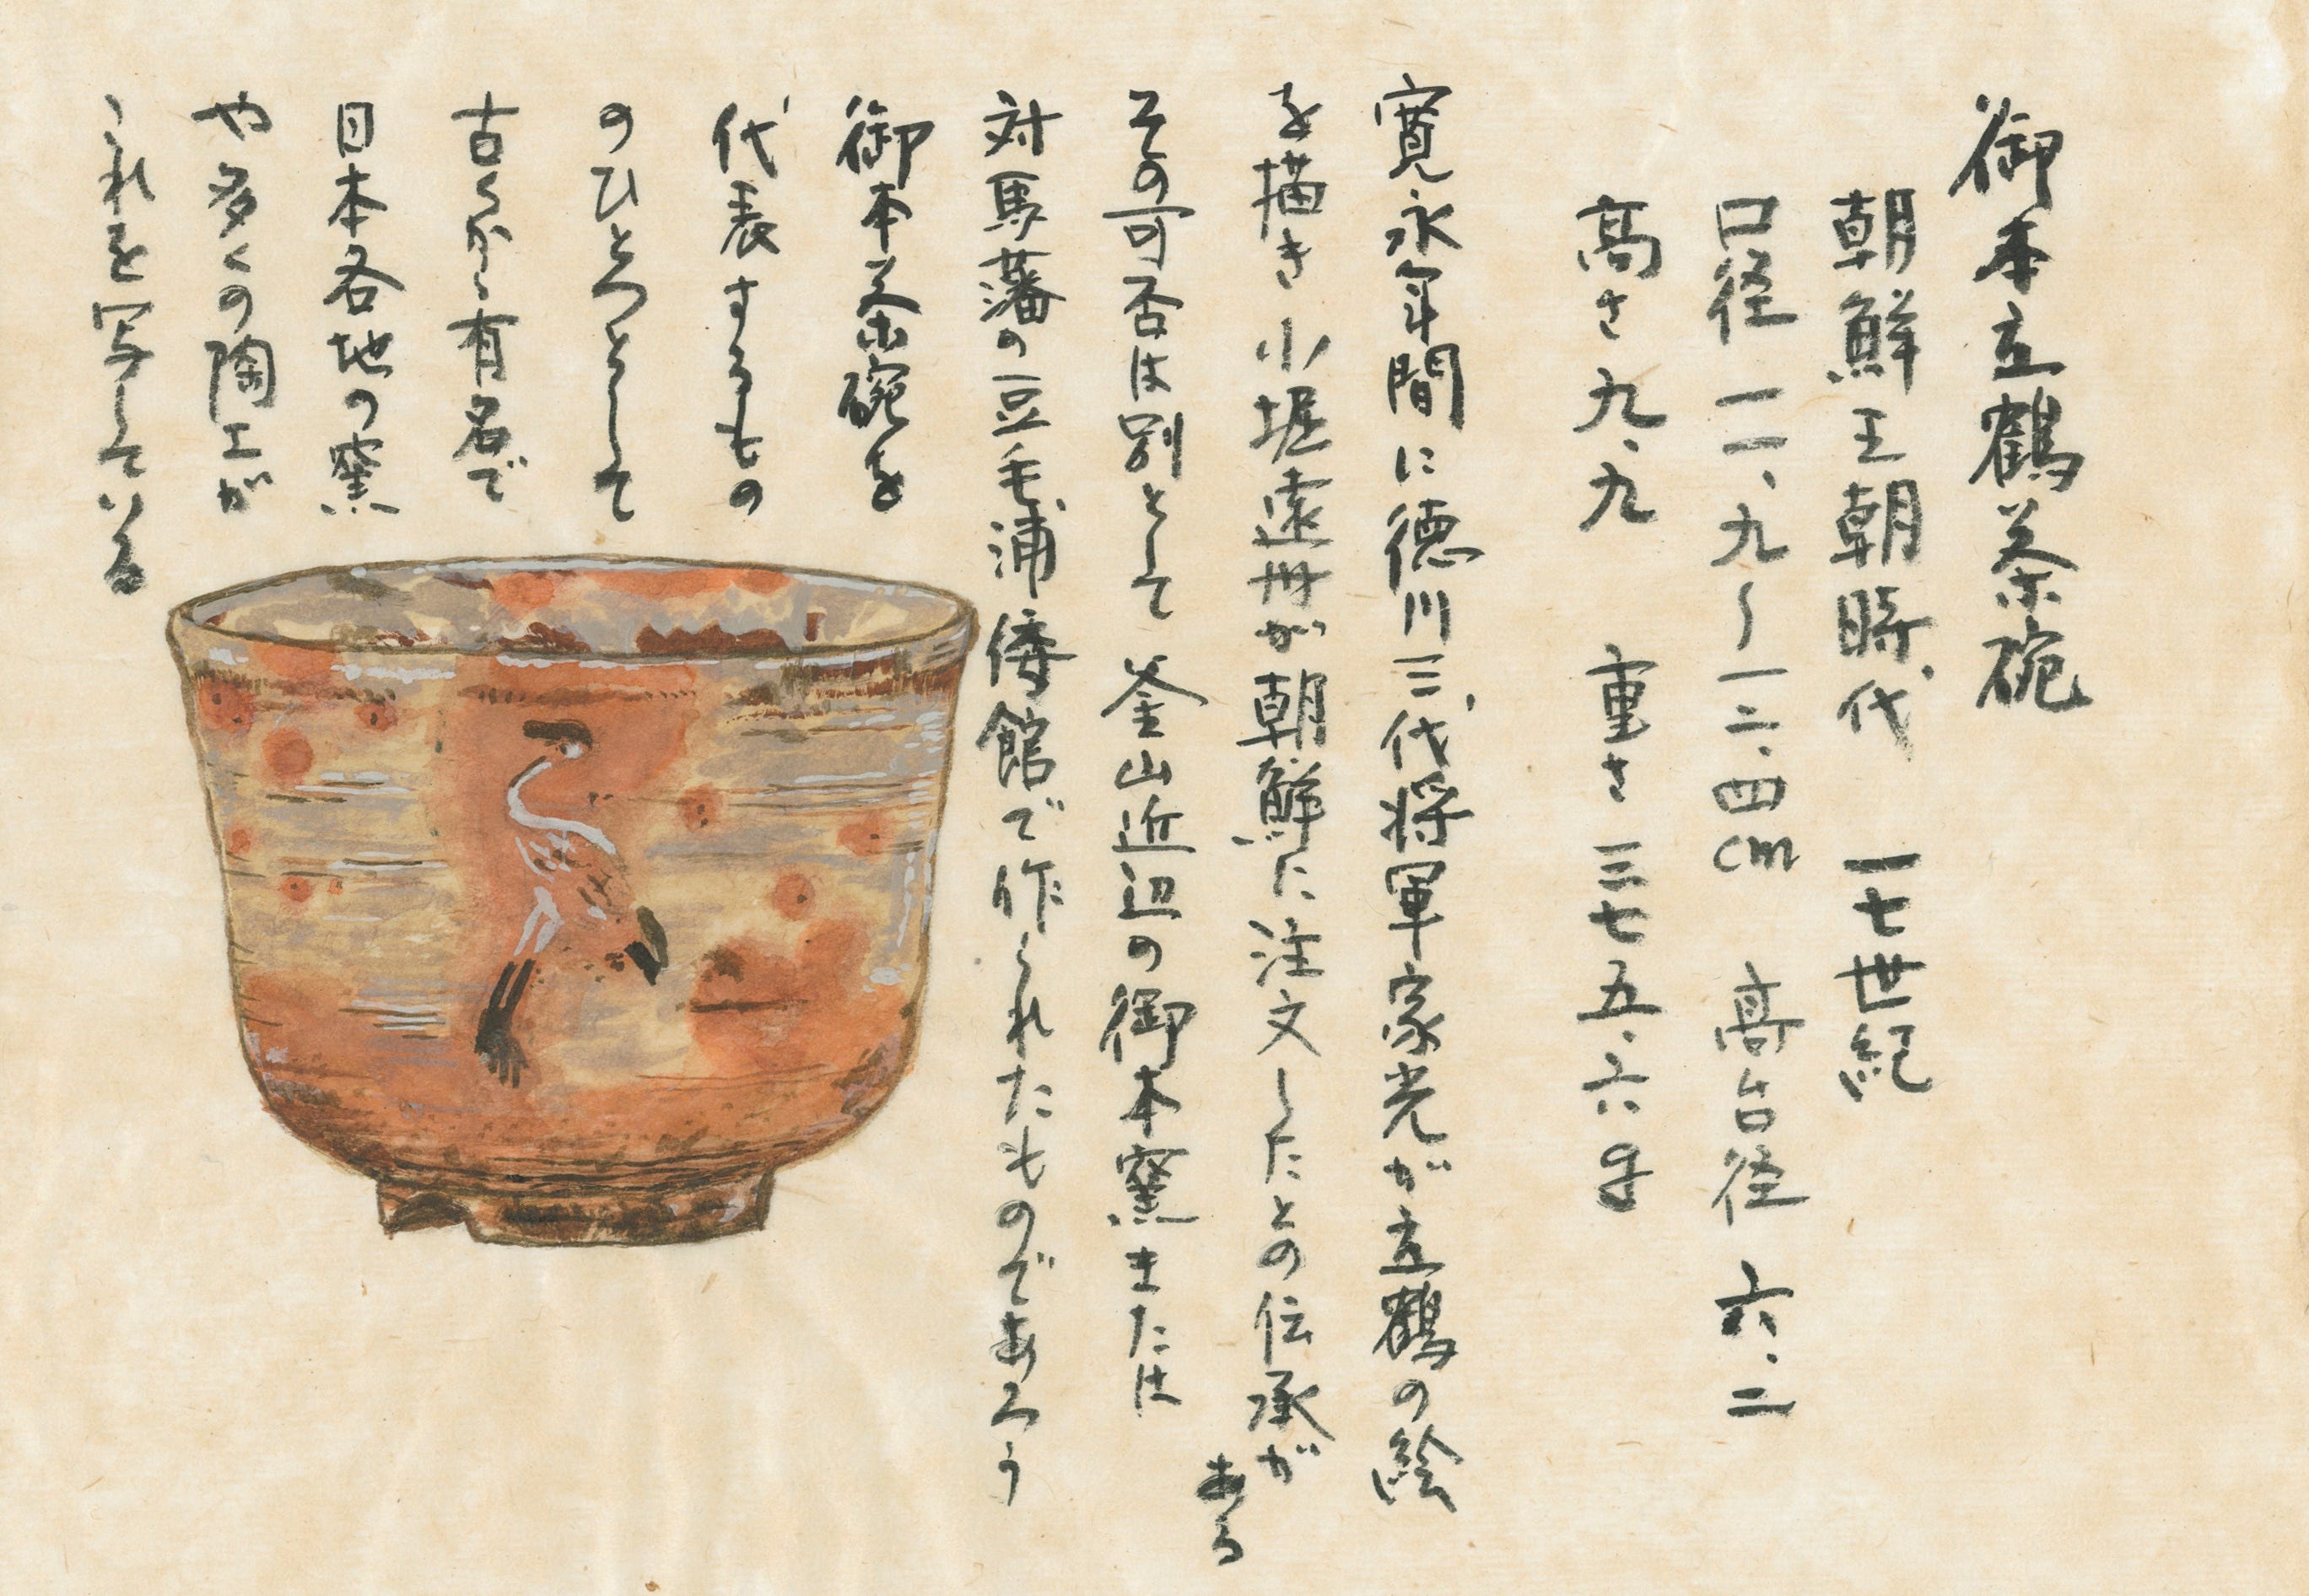 御本立鶴茶碗
朝鮮王朝時代 一七世紀
口径 一一、九〜一二、四cm 高台径 六、二
高さ 九、九 重さ 三七五、六g
寛永年間に徳川三代将軍家光が立鶴の絵
を描き小堀遠州が朝鮮に注文したとの伝承が
ある
その可否は別として釜山近辺の御本窯または
対馬藩の豆毛浦倭館で作られたものであろう
御本茶碗を
代表するもの
のひとつとして
古くから有名で
日本各地の窯
や多くの陶工が
これを写している